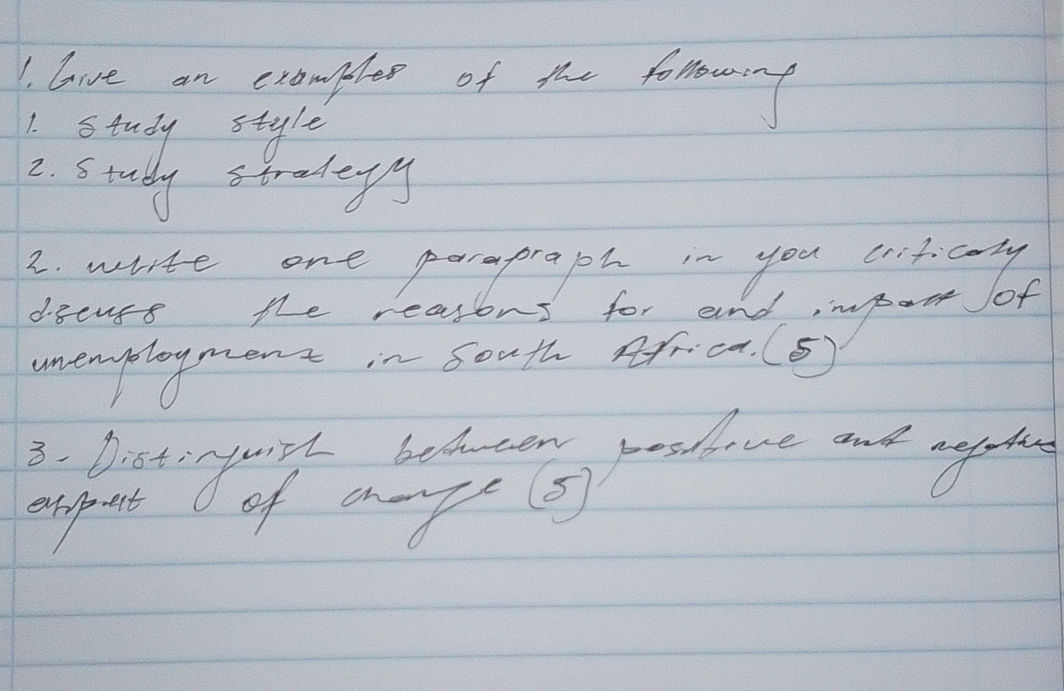 1. Give an examples of the following
1. study style
2. study strategy
2. write one paragraph in you criticaly
discuss the reasons for and impact of
unemployment in South Africa. (5)
3. Distinguish between positive and negative
aspect of change (5)